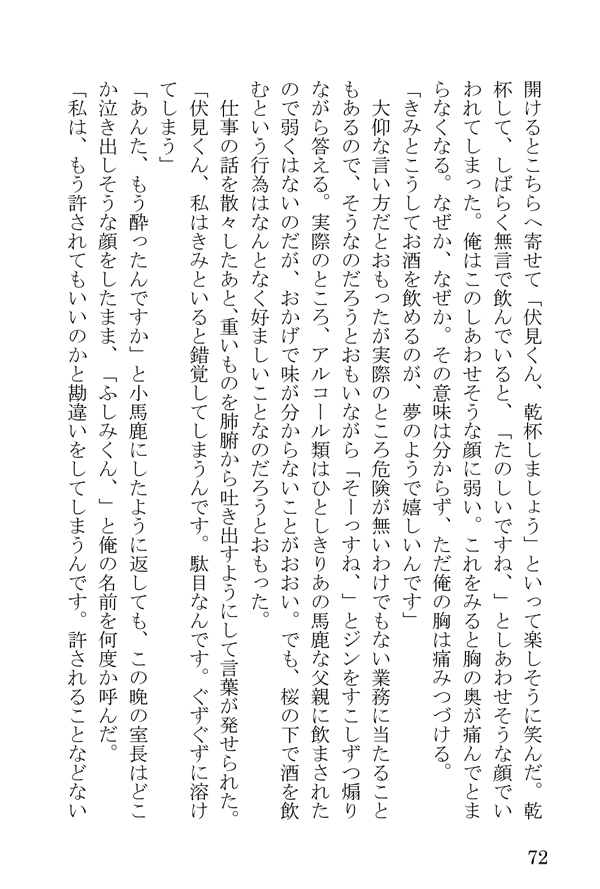 開けるとこちらへ寄せて「伏見くん、乾杯しましょう」といって楽しそうに笑んだ。乾
杯して、しばらく無言で飲んでいると、「たのしいですね、」としあわせそうな顔でい
われてしまった。俺はこのしあわせそうな顔に弱い。これをみると胸の奥が痛んでとま
らなくなる。なぜか、なぜか。その意味は分からず、ただ俺の胸は痛みつづける。
「きみとこうしてお酒を飲めるのが、夢のようで嬉しいんです」
大仰な言い方だとおもったが実際のところ危険が無いわけでもない業務に当たること
もあるので、そうなのだろうとおもいながら「そーっすね、」とジンをすこしずつ煽り
ながら答える。実際のところ、アルコール類はひとしきりあの馬鹿な父親に飲まされた
ので弱くはないのだが、おかげで味が分からないことがおおい。でも、桜の下で酒を飲
むという行為はなんとなく好ましいことなのだろうとおもった。
仕事の話を散々したあと、重いものを肺腑から吐き出すようにして言葉が発せられた。
「伏見くん、私はきみといると錯覚してしまうんです。駄目なんです。ぐずぐずに溶け
てしまう」
「あんた、もう酔ったんですか」と小馬鹿にしたように返しても、この晩の室長はどこ
か泣き出しそうな顔をしたまま、「ふしみくん、」と俺の名前を何度か呼んだ。
「私は、もう許されてもいいのかと勘違いをしてしまうんです。許されることなどない
72